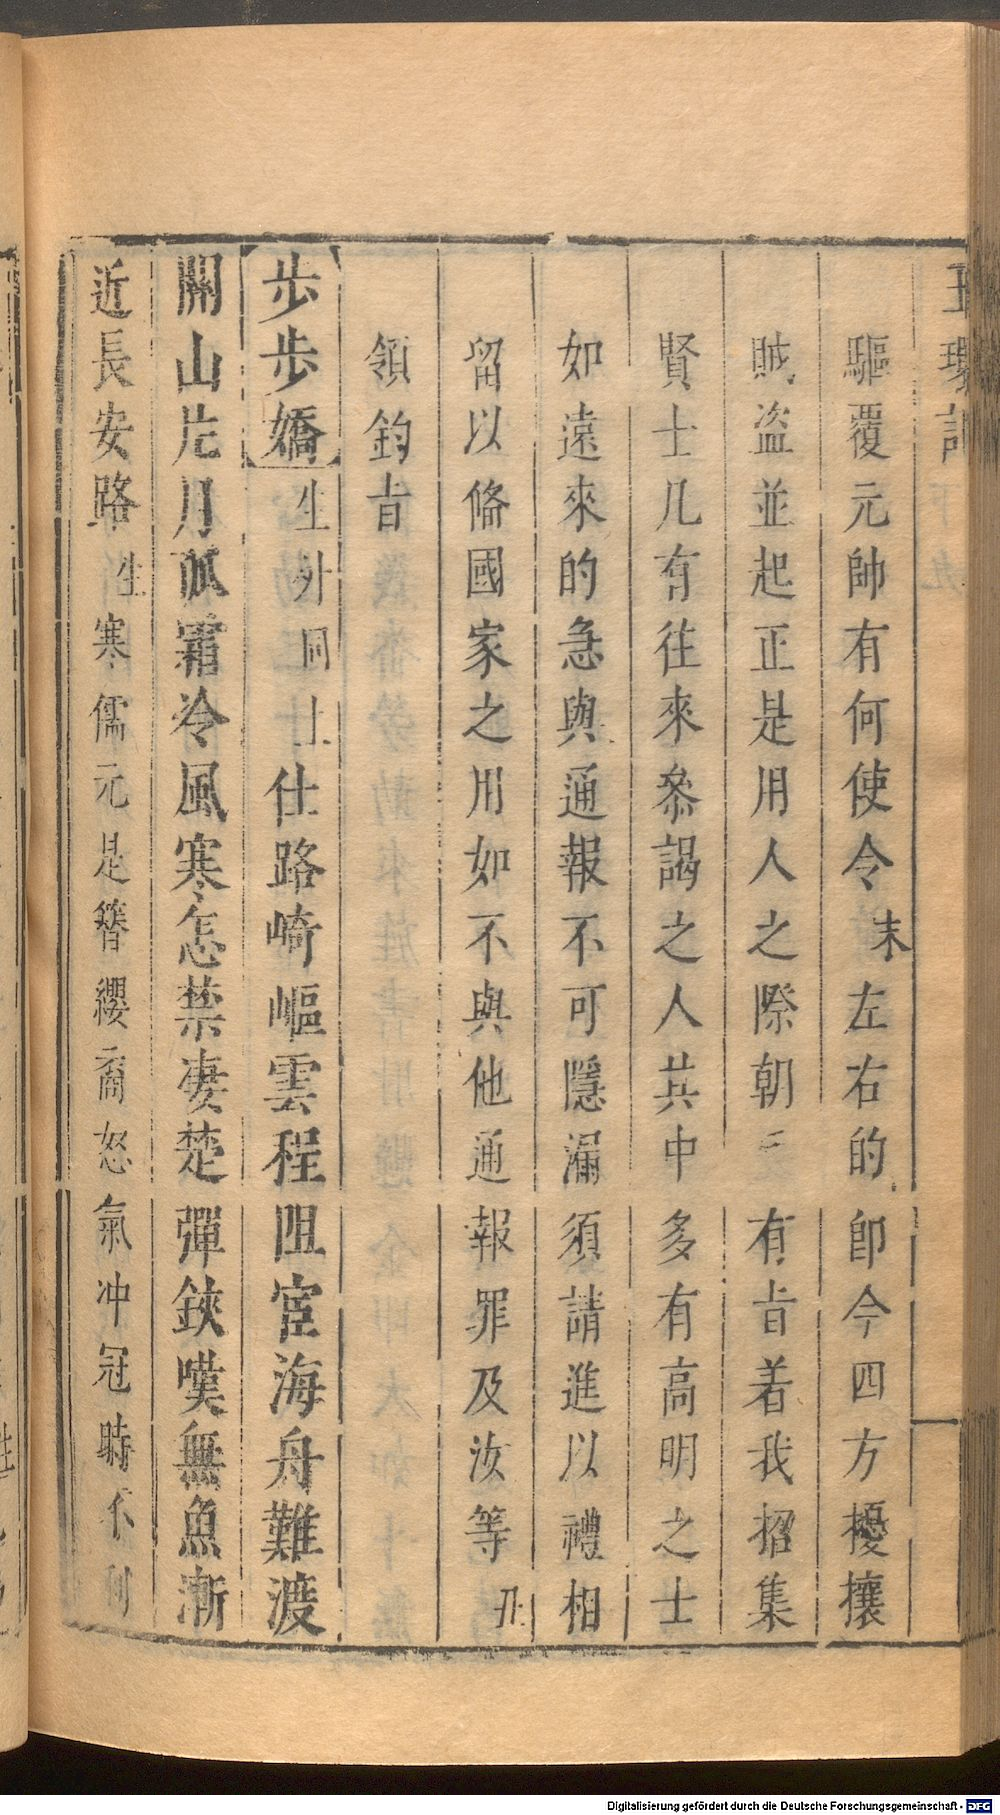 玉環記
驅覆元帥有何使令末左右的卽今四方擾攘
賊盗並起正是用人之際朝 有㫖着我招集
賢士凡有往來叅謁之人其中多有高明之士
如遠來的急與通報不可隱漏須請進以禮相
留以俻國家之用如不與他通報罪及汝等丑
領鈞㫖
步步嬌生外同上仕路崎嶇雲程阻宦海舟難渡
關山片月孤霜冷風寒怎禁凄楚彈鋏嘆無魚漸
近長安路生寒儒元是簪纓裔怒氣冲冠時不利
Digitalisierung gefördert durch die Deutsche Forschungsgemeinschaft - DFG